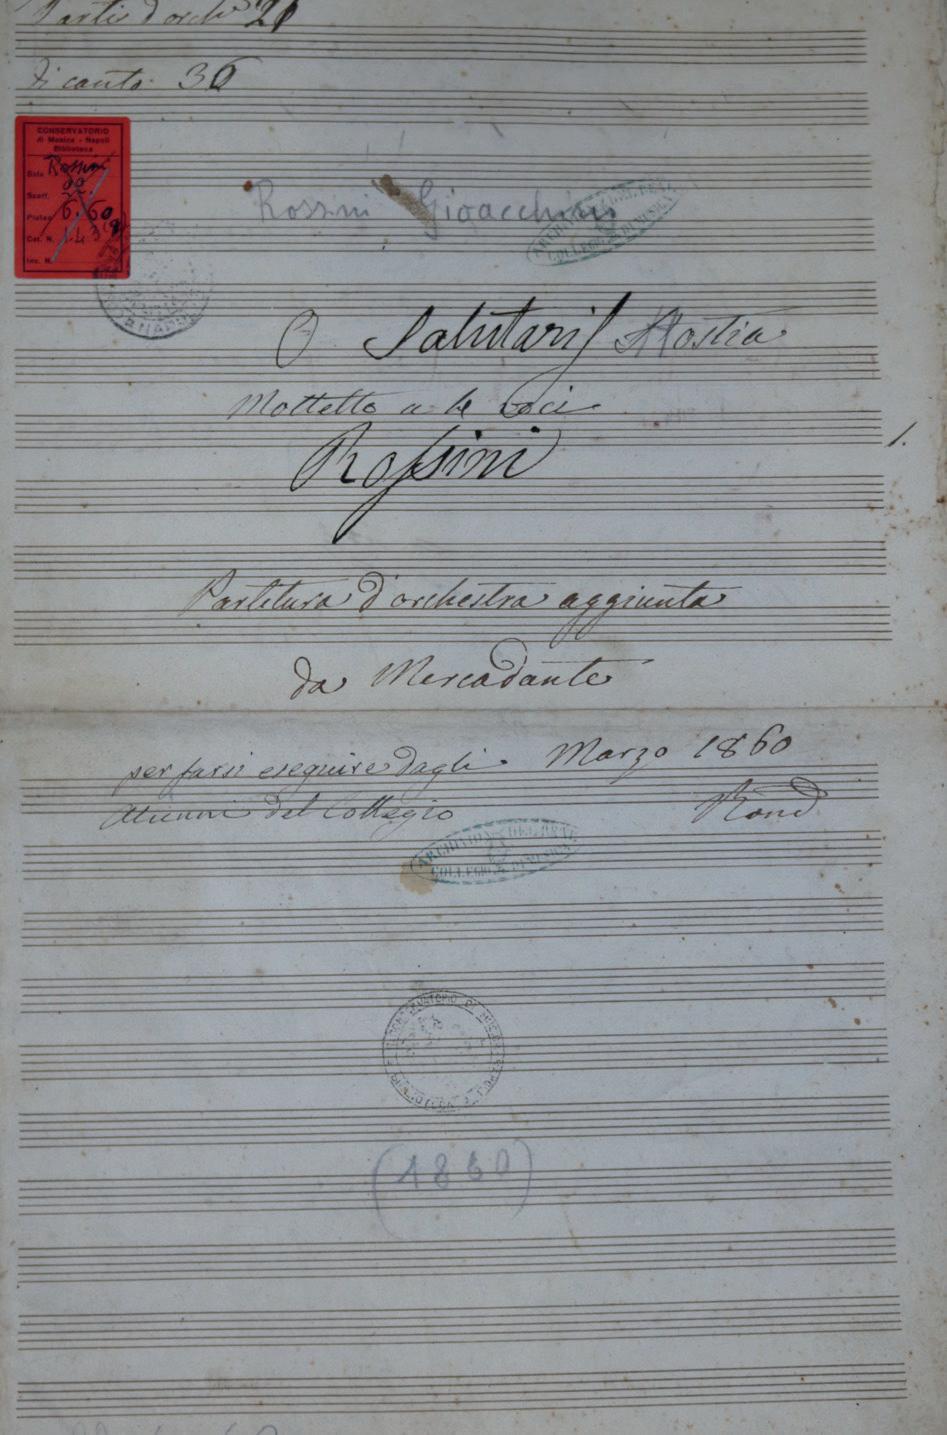 Parti d'orch.ª 21
di canto 36
CONSERVATORIO
di Musica - Napoli
Biblioteca
Sala Rossini
Scaff.
Pluteo 6.
Cat. N.
Inv. N.
Rossini Gioacchino
ARCHIVIO DEL REAL
COLLEGIO DI MUSICA
O Salutaris Hostia
Mottetto a 4 voci
Rossini
1.
Partitura d'orchestra aggiunta
da Mercadante
per farsi eseguire dagli Marzo 1860
Alunni del Collegio
ARCHIVIO DEL REAL
COLLEGIO DI MUSICA
(1860)